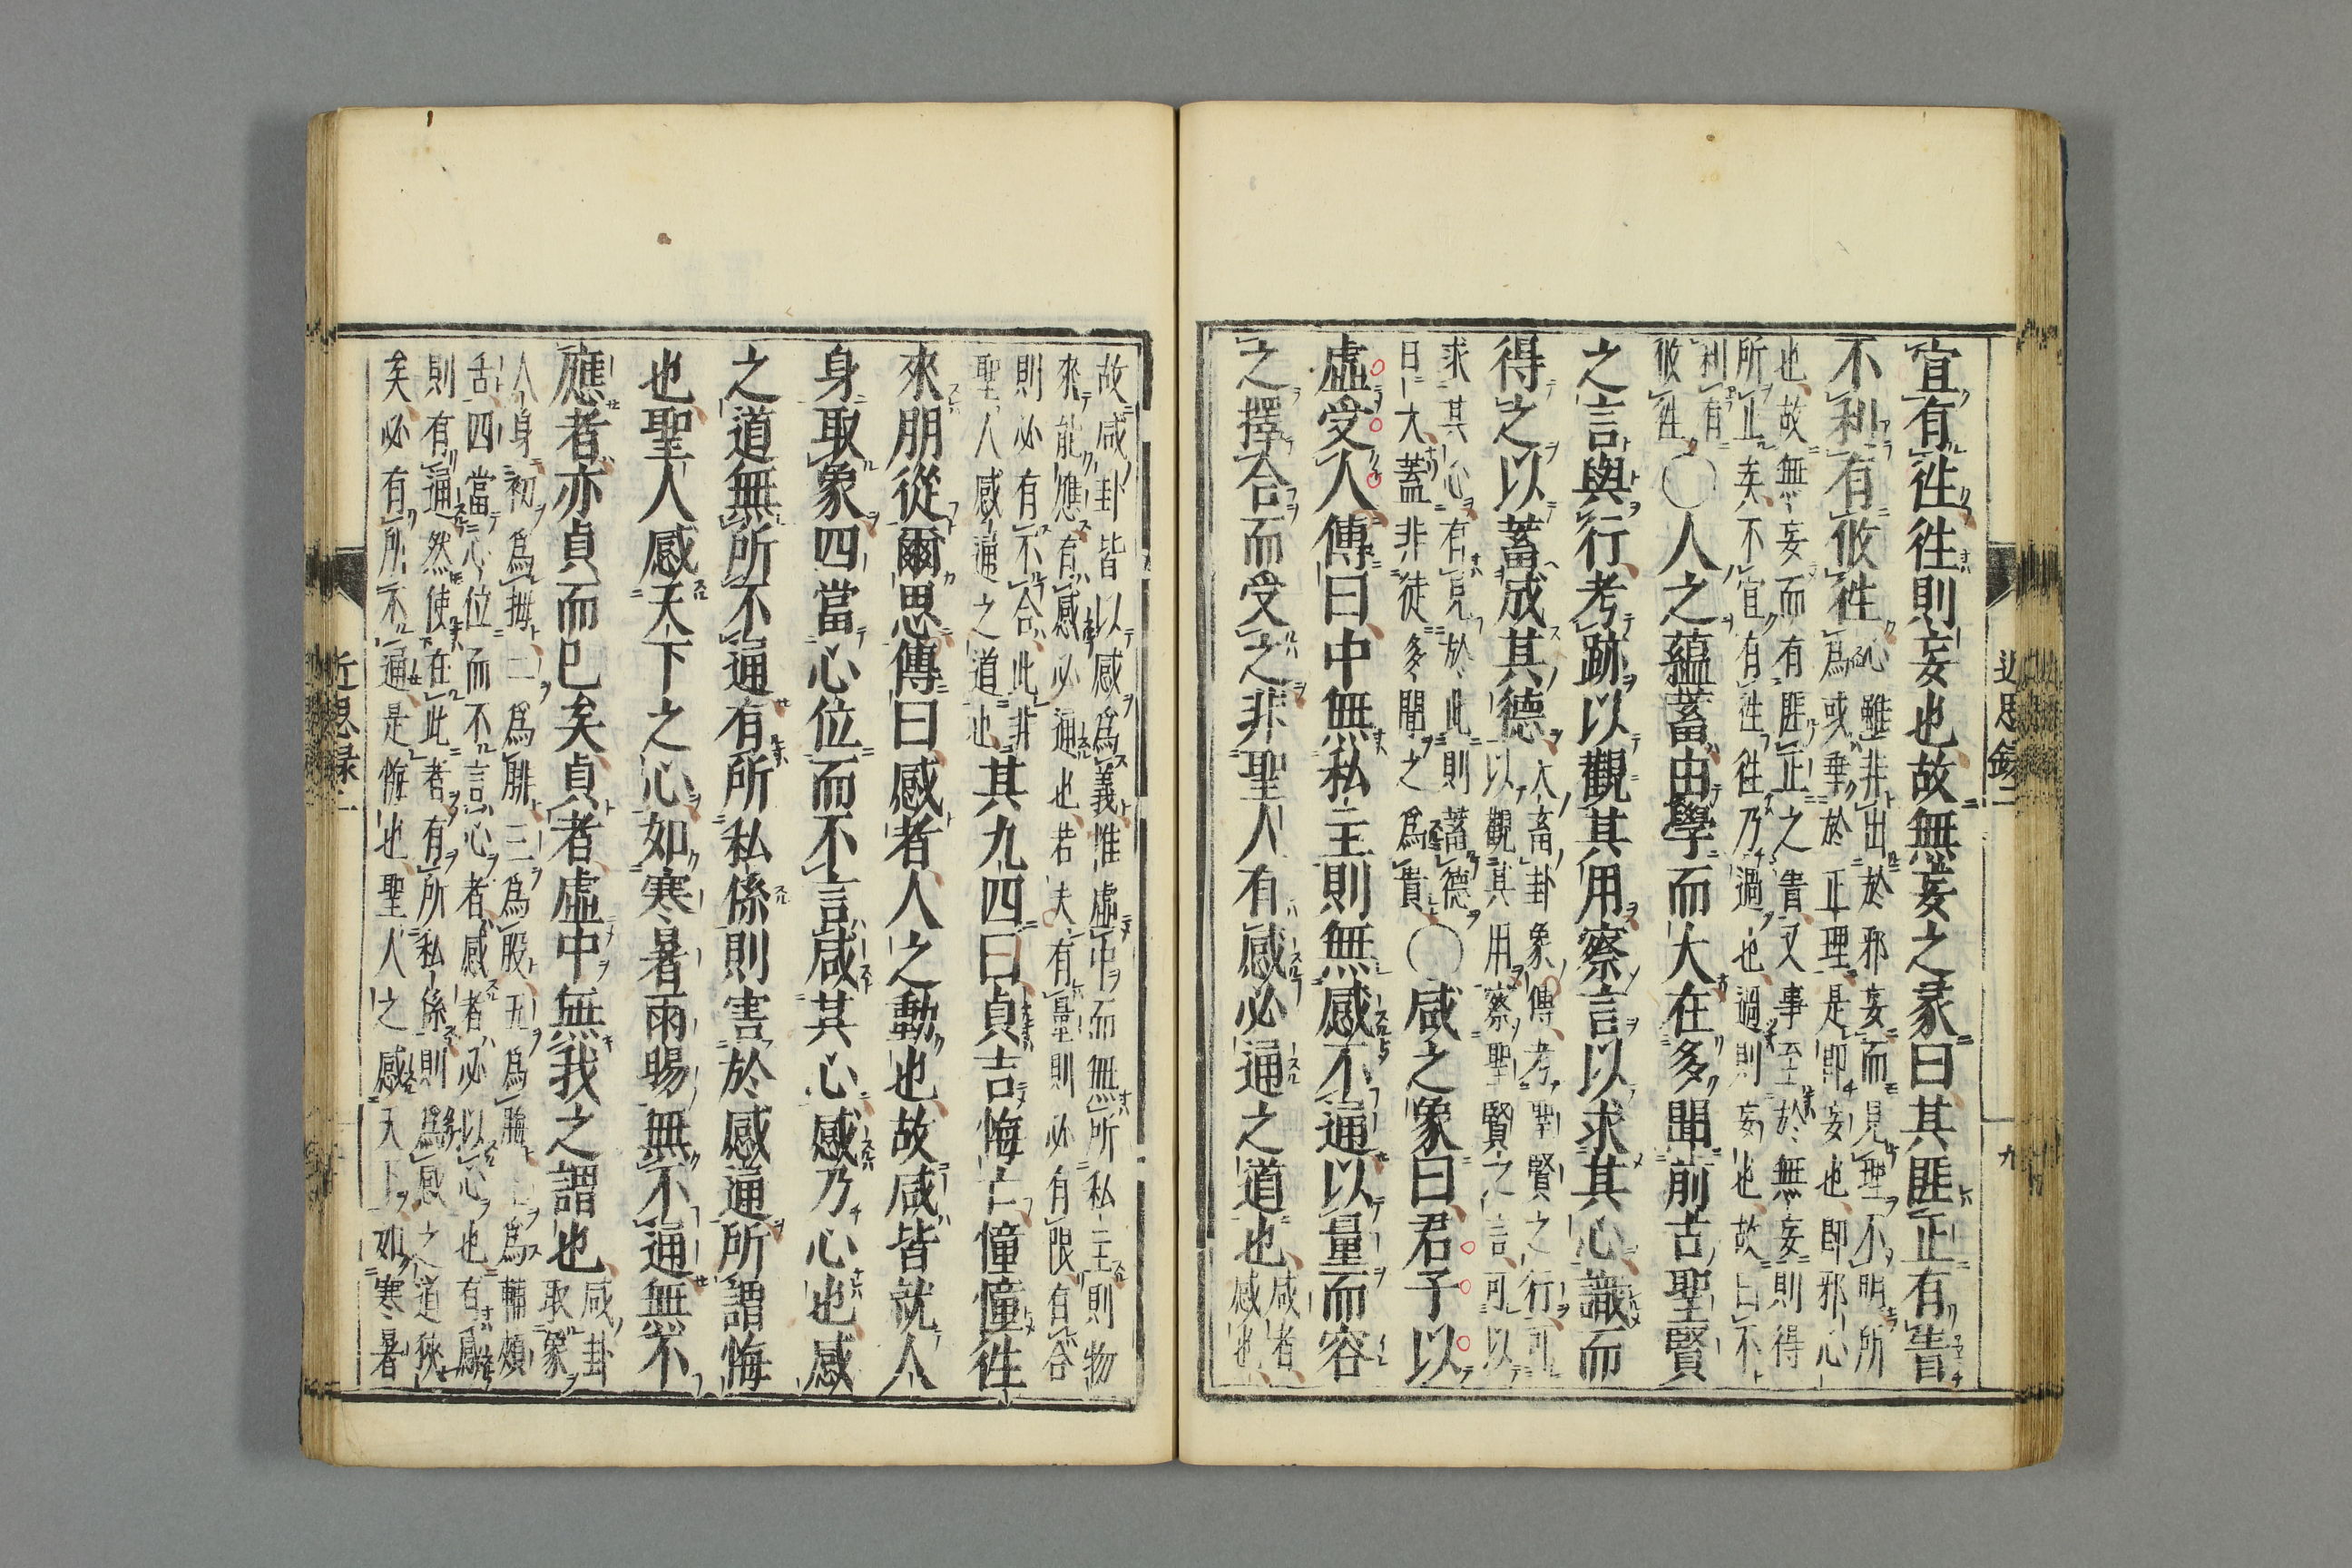 近思錄二
九
宜有徃徃則妄也故無妄之彖曰其匪正有眚
不利有攸徃
心雖非出於邪妄而見理不明所
爲或乖於正理是即妄也即邪心
也故無妄而有匪正之眚又事至於無妄則得
所止矣不宜有徃徃乃過也過則妄也故曰不
利有
攸徃
〇人之蘊蓄由學而大在多聞前古聖賢
之言與行考跡以觀其用察言以求其心識而
得之以蓄成其德
大畜卦象傳考聖賢之行可
以觀其用察聖賢之言可以
求其心有見於此則蓄德
日大蓋非徒多聞之爲貴
〇咸之象曰君子以
虛受人傳曰中無私主則無感不通以量而容
之擇合而受之非聖人有感必通之道也
咸者
感也
故咸卦皆以感爲義惟虛中而無所私主則物
來能應有感必通也若夫有量則必有限有合
則必有不合此非
聖人感通之道也
其九四曰貞吉悔亡憧憧徃
來朋從爾思傳曰感者人之動也故咸皆就人
身取象四當心位而不言咸其心感乃心也感
之道無所不通有所私係則害於感通所謂悔
也聖人感天下之心如寒暑雨暘無不通無不
應者亦貞而已矣貞者虛中無我之謂也
咸卦
取象
人身初爲拇二爲腓三爲股五爲脢上爲輔頰
舌四當心位而不言心者感者必以心也有感
則有通然使在此者有所私係則爲感之道狹
矣必有所不通是悔也聖人之感天下如寒暑
近思錄二